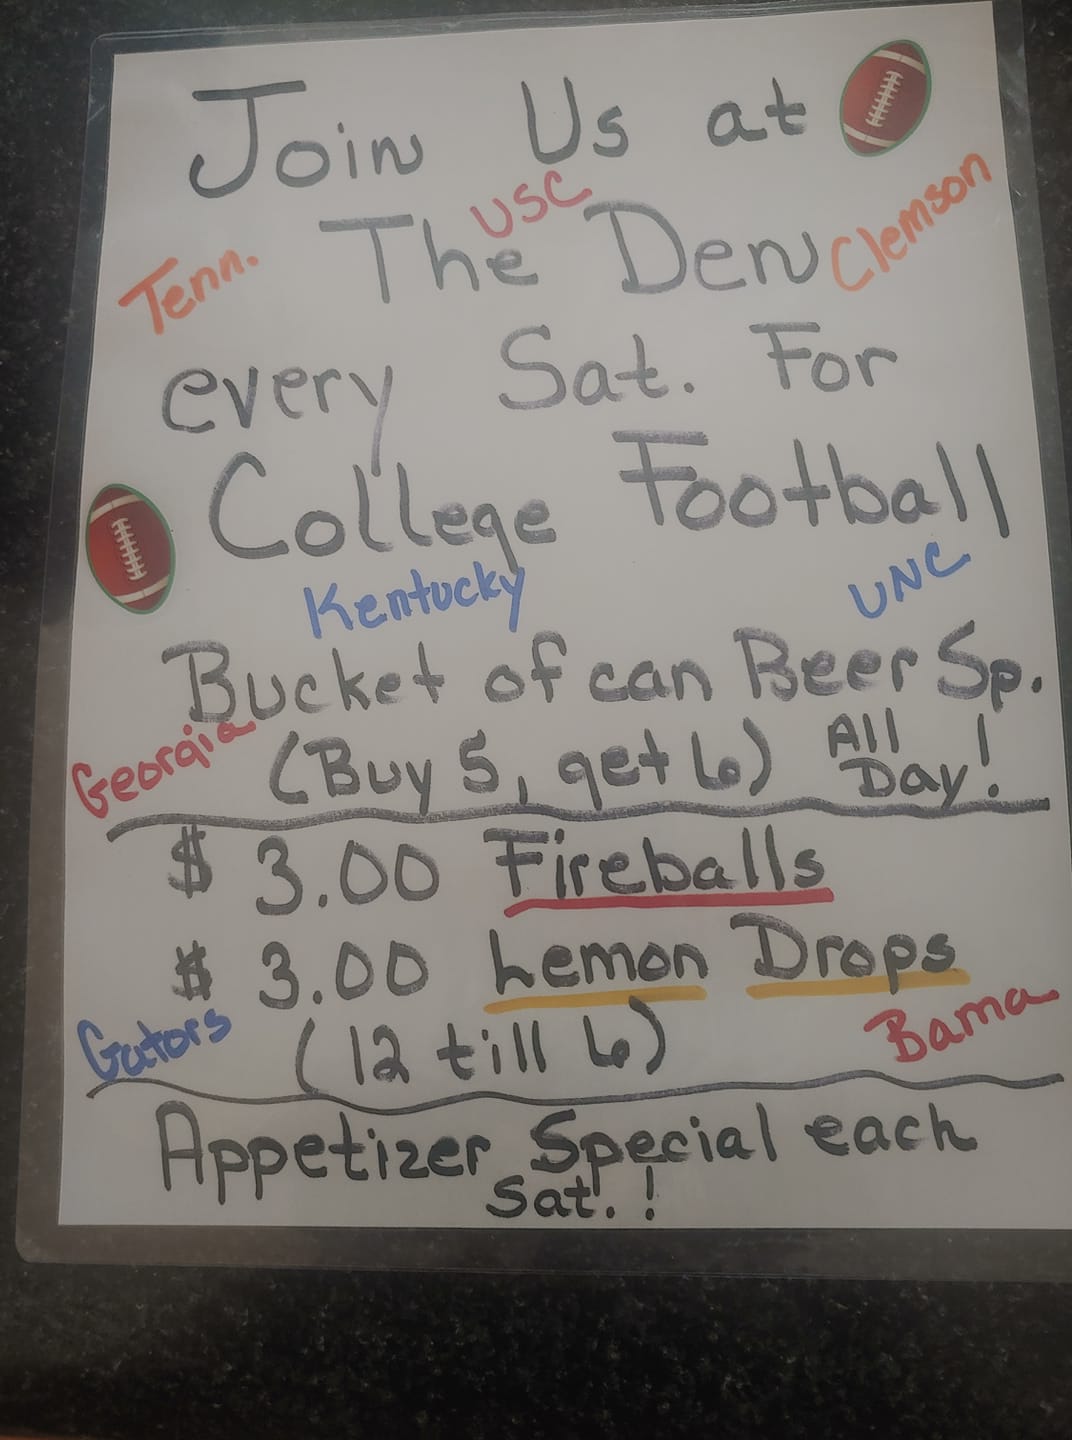 Join Us at
USC
Tenn. The Den Clemson
every Sat. For
College Football
Kentucky UNC
Bucket of can Beer Sp.
Georgia (Buy 5, get 6) All Day!
$ 3.00 Fireballs
$ 3.00 Lemon Drops
Gators (12 till 6) Bama
Appetizer Special each
Sat. !